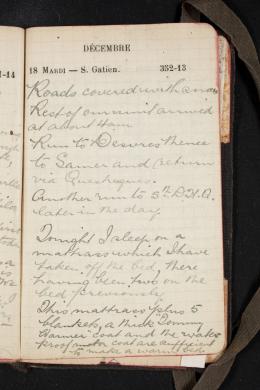 DÉCEMBRE
18 Mardi — S. Gatien. 352-13
1-14
Roads covered with snow
Rest of our unit arrived
at about 4am
Run to Desvres thence
to Samer and return
via Questreques.
Another run to 5th D.H.Q.
later in the day
Tonight I sleep on a
mattrass which I have
taken off the bed, there
having been two on the
bed previously.
This mattrass plus 5
blankets, a thick "Tommy
Warmer" coat and the water
proof motor coat are sufficient
to make a warm bed.